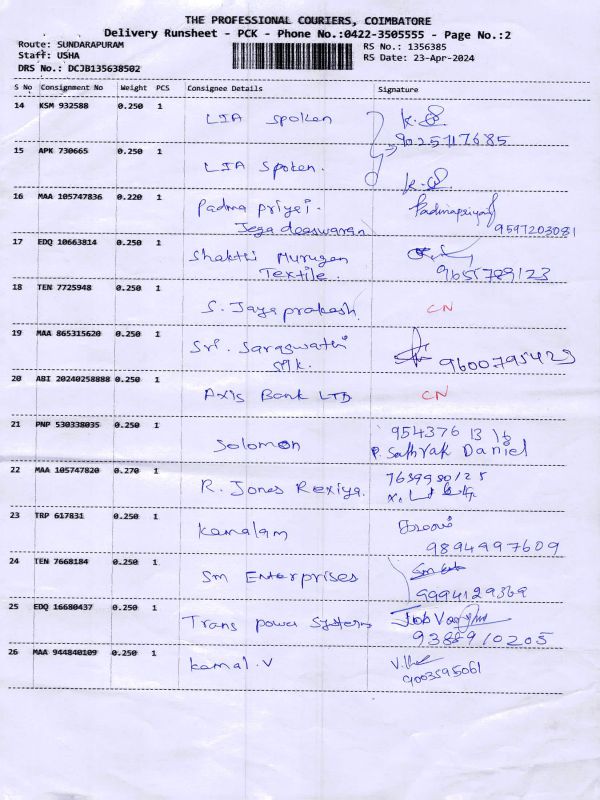 THE PROFESSIONAL COURIERS, COIMBATORE
Delivery Runsheet - PCK - Phone No.:0422-3505555 - Page No.:2
Route: SUNDARAPURAM
RS No.: 1356385
Staff: USHA
RS Date: 23-Apr-2024
DRS No.: DCJB135638502
S No Consignment No Weight PCS Consignee Details Signature
14 KSM 932588 0.250 1 LIA Spoken
9025117685
15 APK 730665 0.250 1 LIA Spoken.
16 MAA 105747836 0.220 1 Padma Priyei. Padmapriya
Jegadeeswaran 9597203081
17 EDQ 10663814 0.250 1 Shakthi Murugan
Textile. 9655789123
18 TEN 7725948 0.250 1 S. Jayaprakash CN
19 MAA 865315620 0.250 1 Sri. Saraswathi
silk. 9600795423
20 ABI 20240258888 0.250 1 Axis Bank LTD CN
21 PNP 530338035 0.250 1 Solomon
P. Sathyak Daniel
22 MAA 105747820 0.270 1 R. Jones Rexiya. 7639980125
23 TRP 617831 0.250 1 Kamalam
9894997609
24 TEN 7668184 0.250 1 Sm Enterprises
9994129369
25 EDQ 16680437 0.250 1 Trans power System
9388910205
26 MAA 944840109 0.250 1 Kamal.V
9003595061